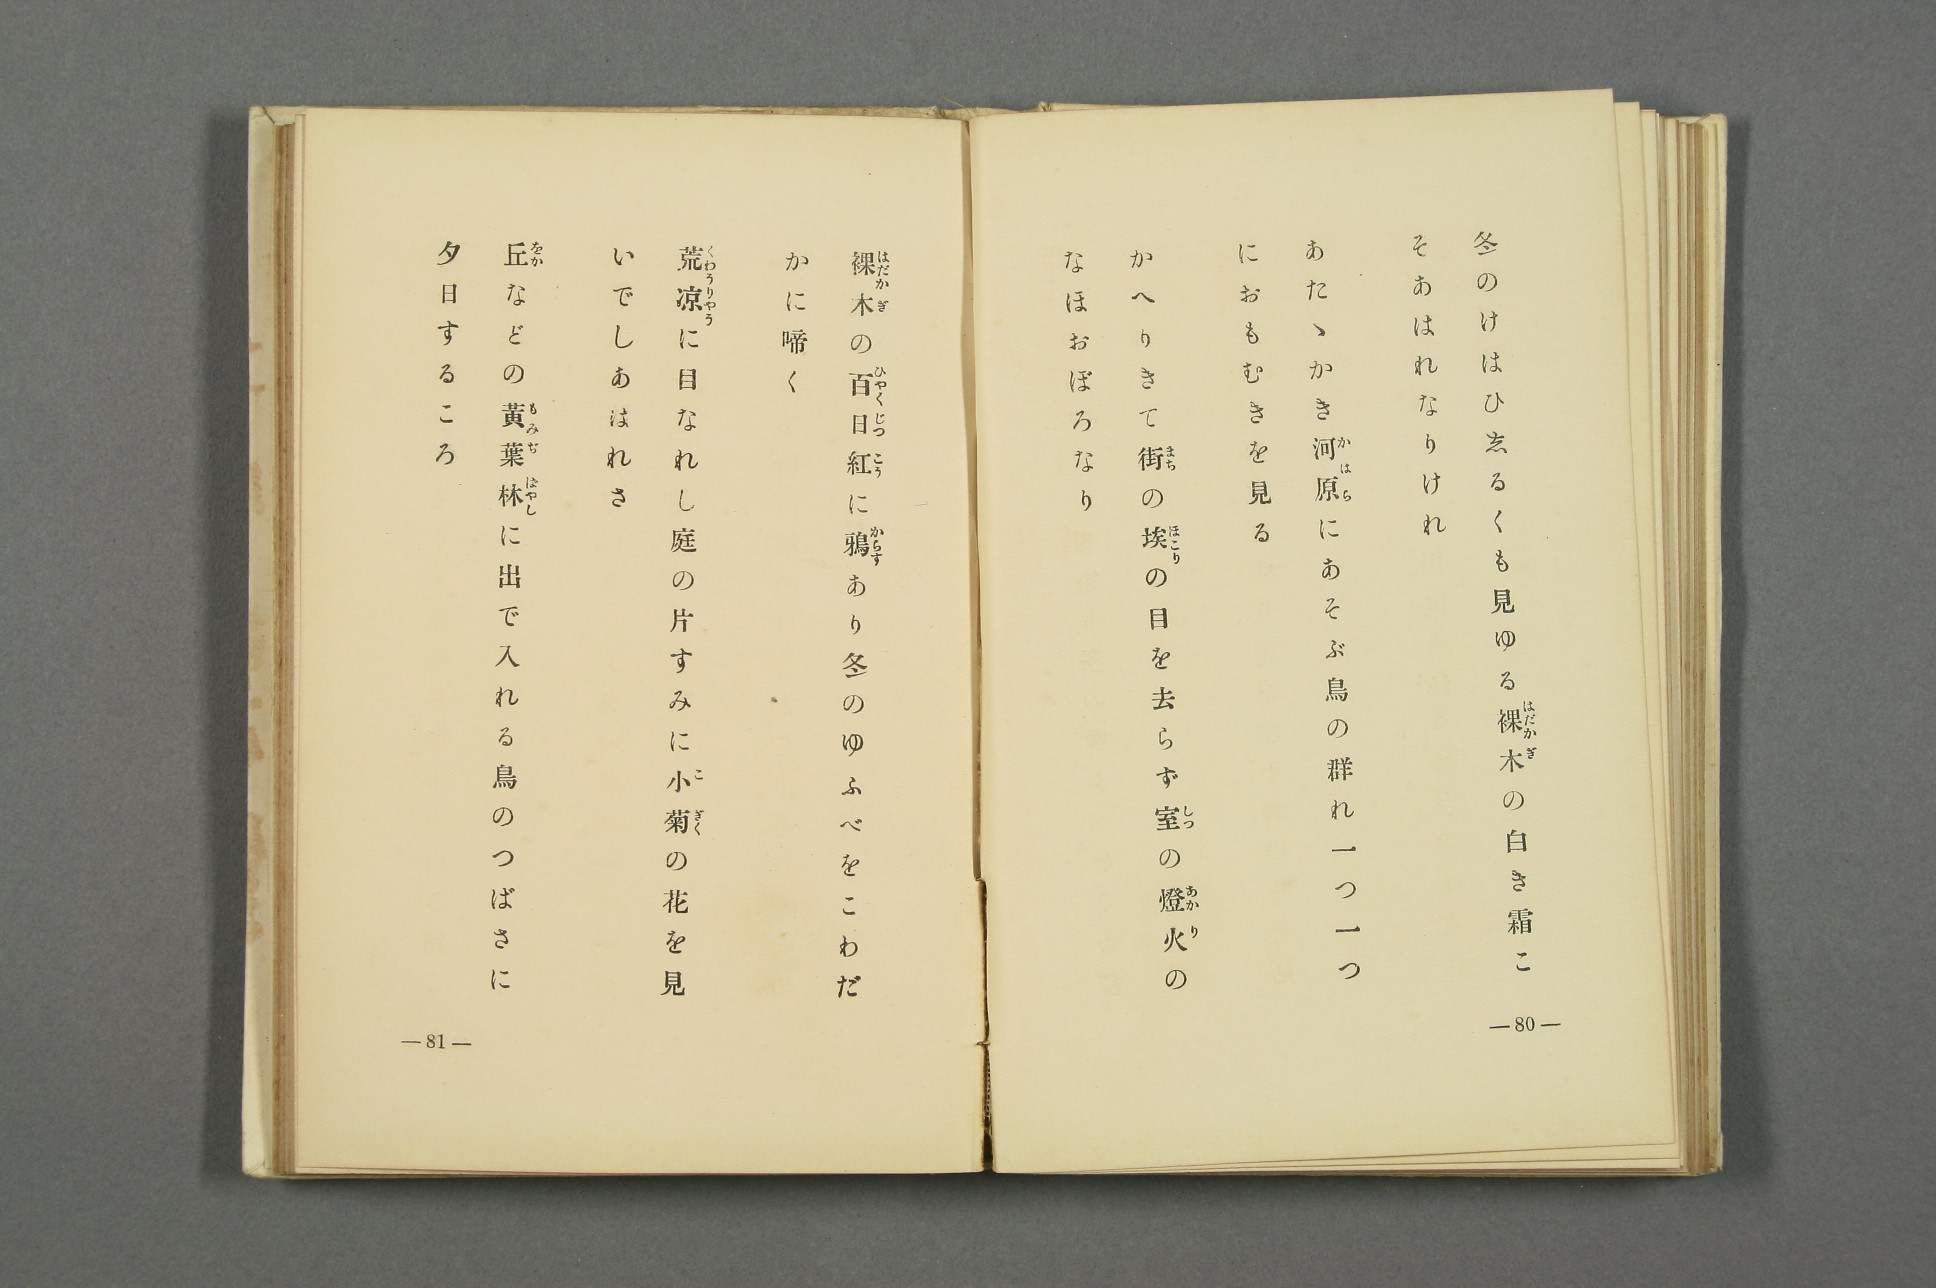 冬のけはひゑるくも見ゆる裸木の白き霜こ
そあはれなりけれ
あたゝかき河原にあそぶ鳥の群れ一つ一つ
におもむきを見る
かへりきて街の埃の目を去らず室の燈火の
なほおぼろなり
—80—
裸木の百日紅に鴉あり冬のゆふべをこわだ
かに啼く
荒凉に目なれし庭の片すみに小菊の花を見
いでしあはれさ
丘などの黄葉林に出で入れる鳥のつばさに
夕日するころ
—81—